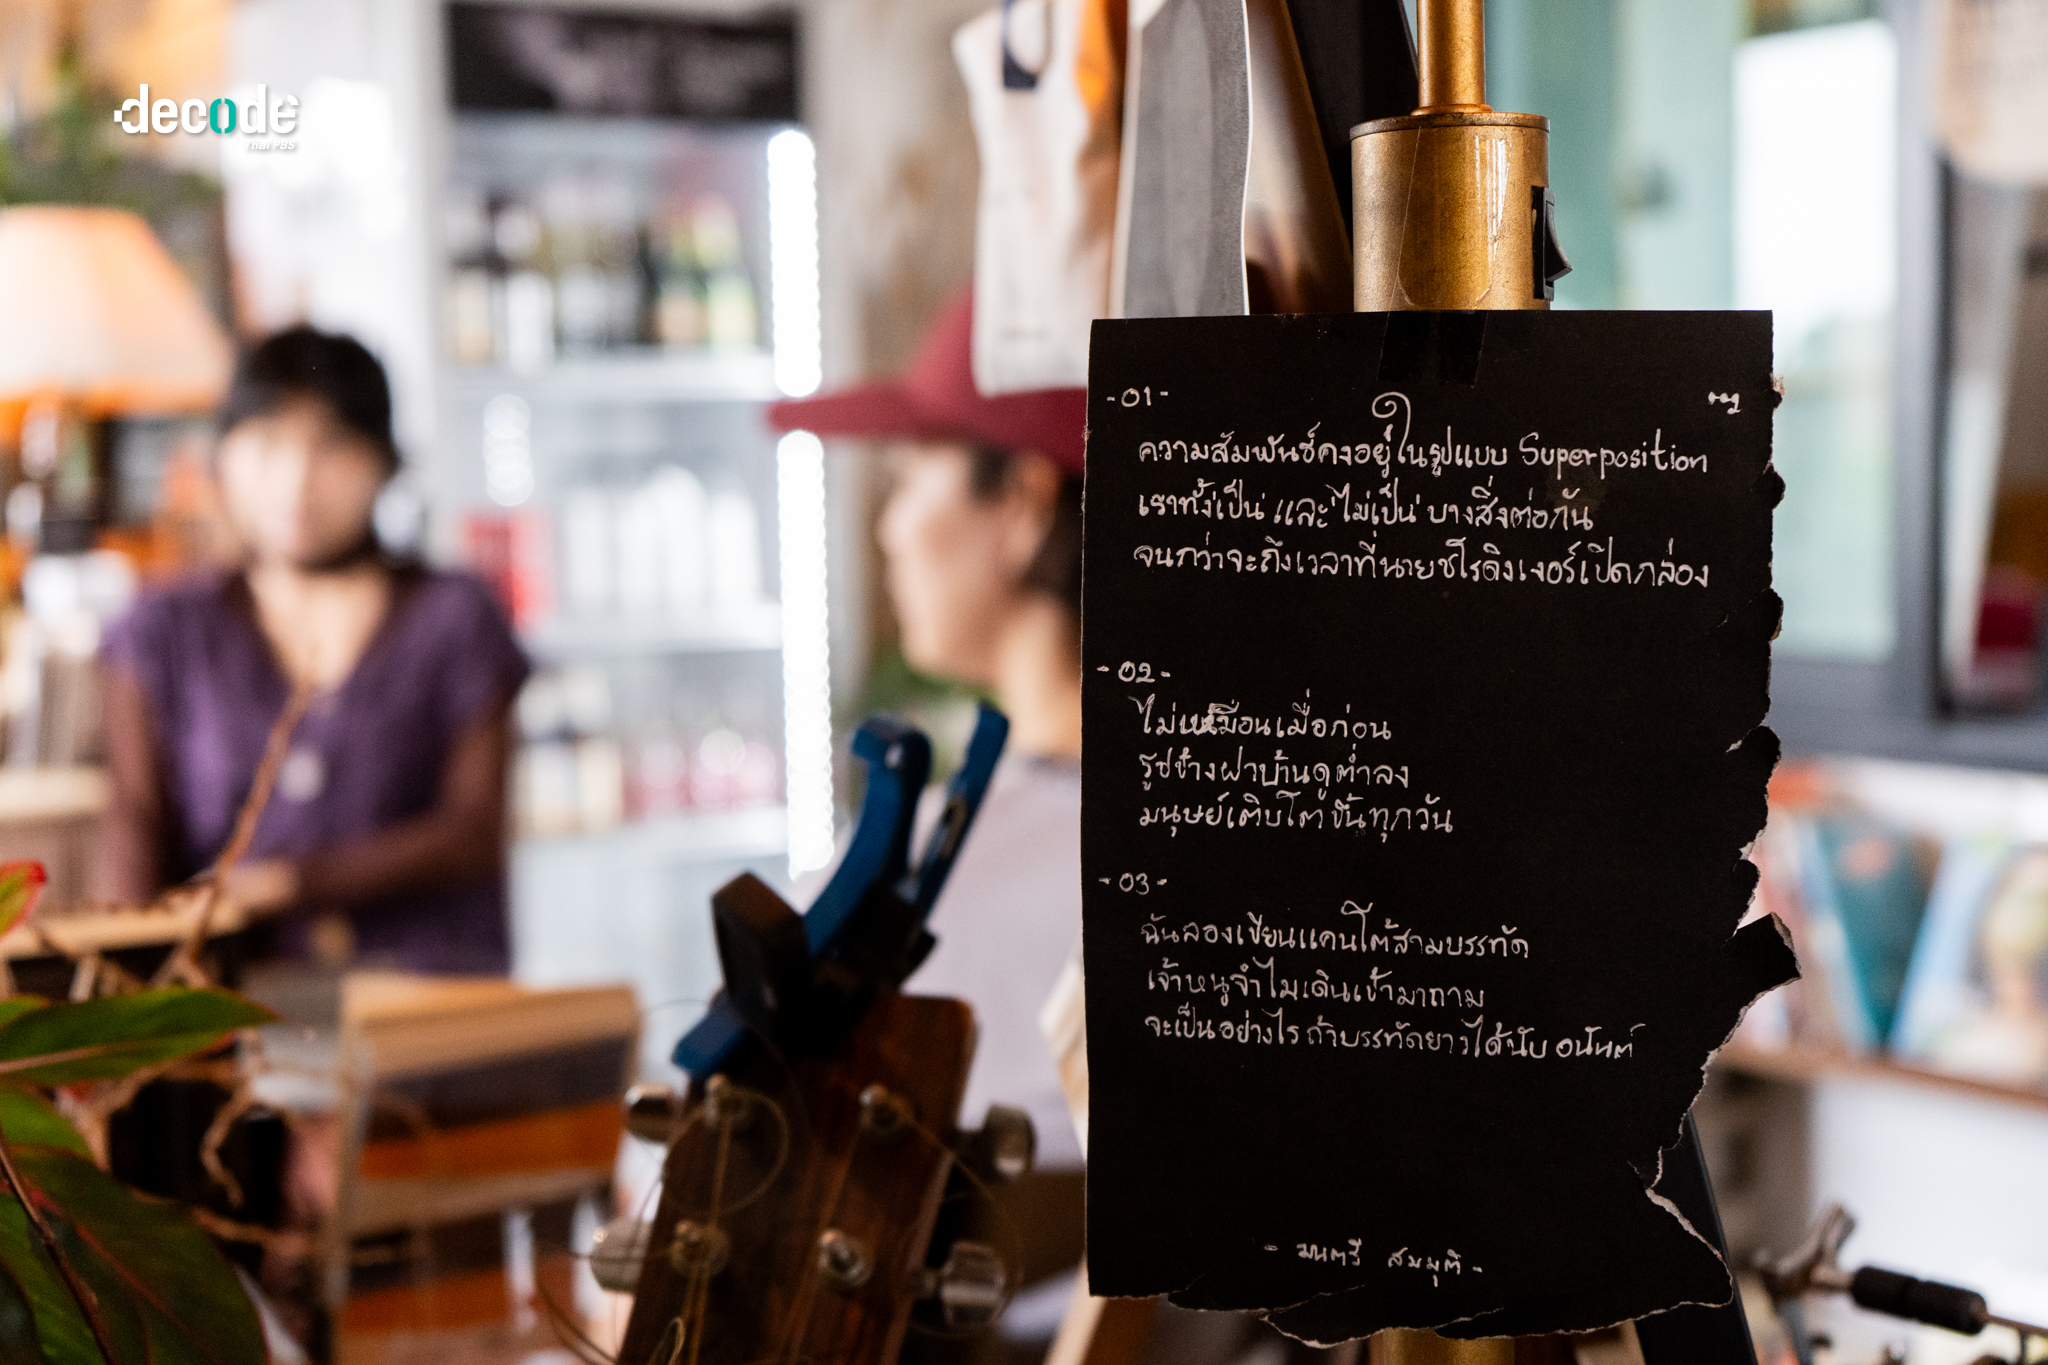 decode
Thai PBS
-01-
ความสัมพันธ์คงอยู่ในรูปแบบ Superposition
เราทั้งเป็น และ ไม่เป็น บางสิ่งต่อกัน
จนกว่าจะถึงเวลาที่นายชโรดิงเงอร์เปิดกล่อง
-02-
ไม่เหมือนเมื่อก่อน
รูปข้างฝาบ้านดูต่ำลง
มนุษย์เติบโตขึ้นทุกวัน
-03-
ฉันลองเขียนแคนโต้สามบรรทัด
เจ้าหนูจำไมเดินเข้ามาถาม
จะเป็นอย่างไร ถ้าบรรทัดยาวได้นับ อนันต์
- มนตรี สมมุติ -